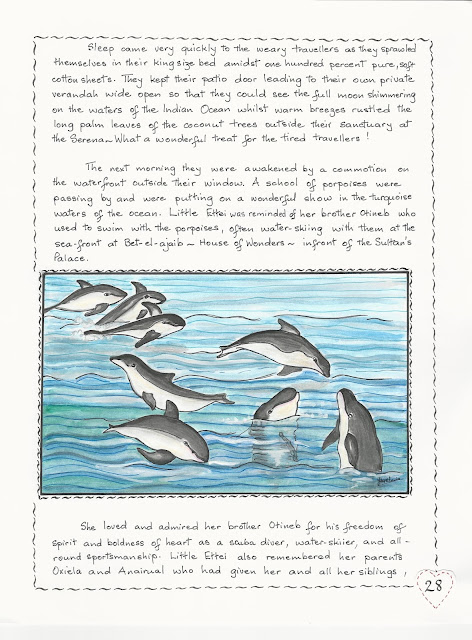 Sleep came very quickly to the weary travellers as they sprawled
themselves in their king size bed amidst one hundred percent pure, soft
cotton sheets. They kept their patio door leading to their own private
verandah wide open so that they could see the full moon shimmering
on the waters of the Indian Ocean whilst warm breezes rustled the
long palm leaves of the coconut trees outside their sanctuary at
the Serena~ What a wonderful treat for the tired travellers!
The next morning they were awakened by a commotion on
the waterfront outside their window. A school of porpoises were
passing by and were putting on a wonderful show in the turquoise
waters of the ocean. Little Effei was reminded of her brother Otineb who
used to swim with the porpoises, often water-skiing with them at the
sea-front at Bet-el-ajaib ~ House of Wonders ~ infront of the Sultan's
Palace.
She loved and admired her brother Otineb for his freedom of
spirit and boldness of heart as a scuba diver, water-skiier, and all-
round sportsmanship. Little Effei also remembered her parents
Oxiela and Anairual who had given her and all her siblings,
28